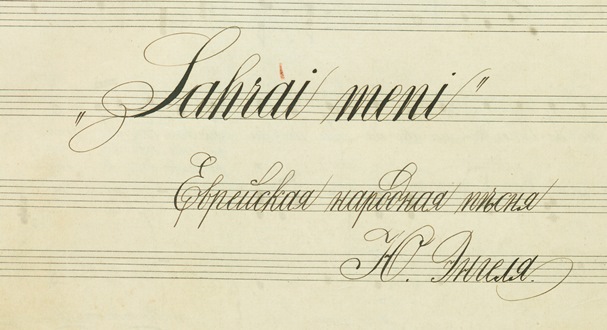 „Sahrai meni”
Еврейская народная пѣсня
Ю. Энгеля.